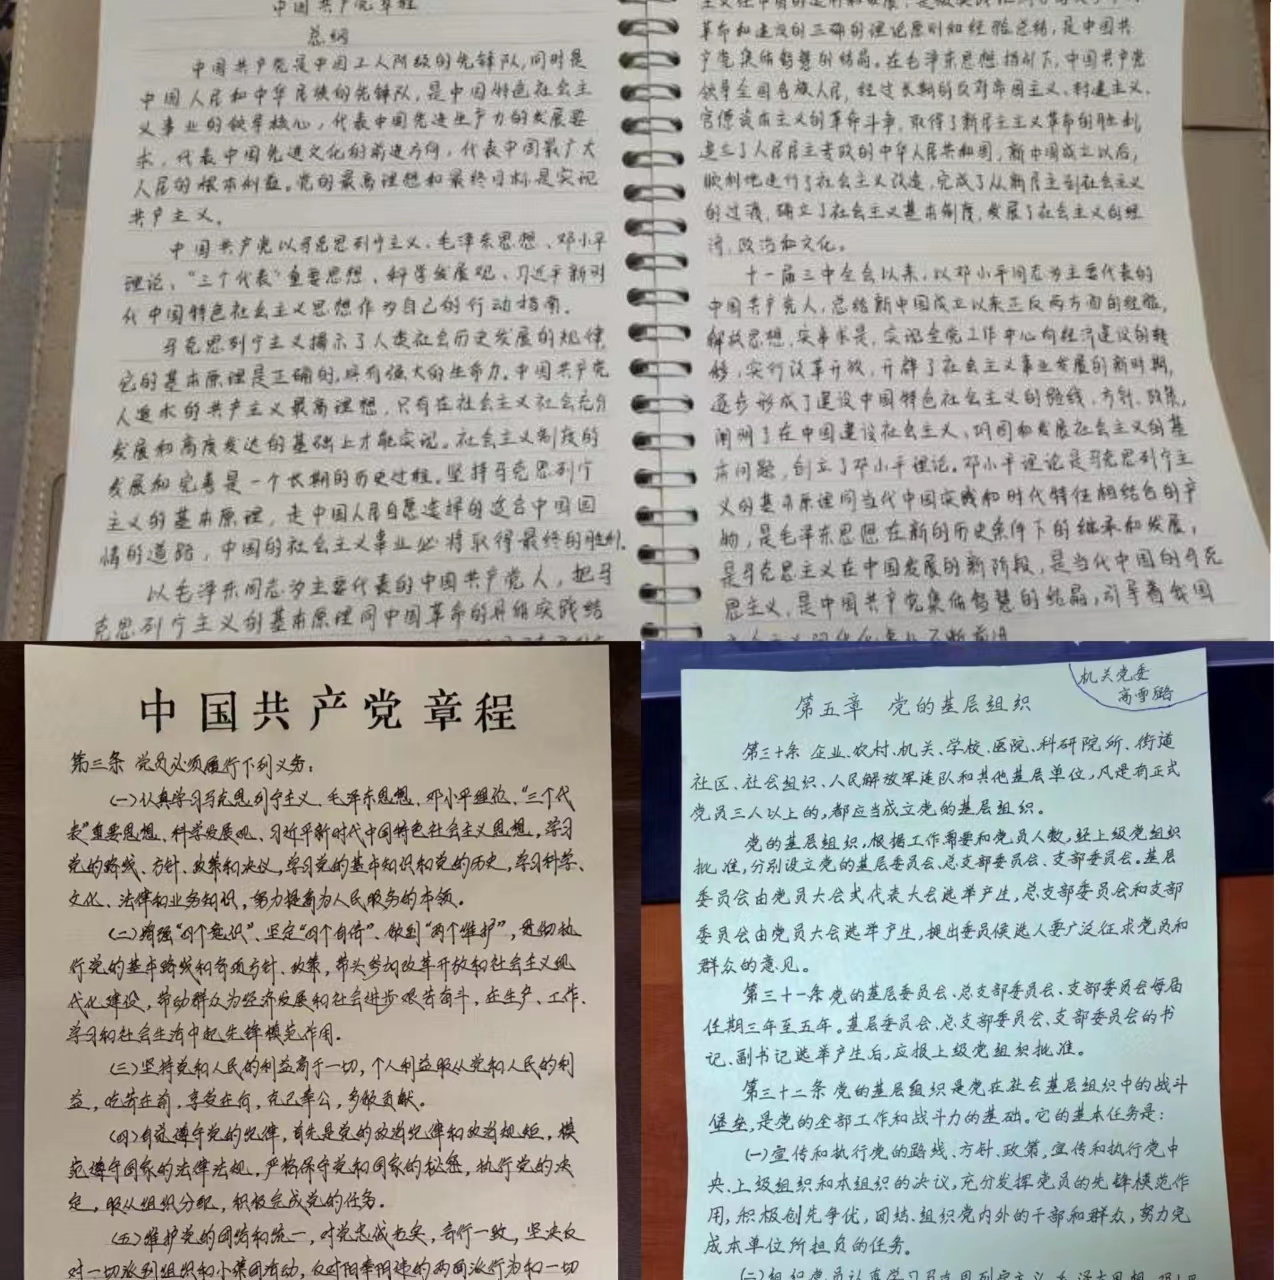 中国共产党章程
总纲
中国共产党是中国工人阶级的先锋队,同时是
中国人民和中华民族的先锋队,是中国特色社会主
义事业的领导核心,代表中国先进生产力的发展要
求,代表中国先进文化的前进方向,代表中国最广大
人民的根本利益。党的最高理想和最终目标是实现
共产主义。
中国共产党以马克思列宁主义、毛泽东思想、邓小平
理论、“三个代表”重要思想、科学发展观、习近平新时
代中国特色社会主义思想作为自己的行动指南。
马克思列宁主义揭示了人类社会历史发展的规律,
它的基本原理是正确的,具有强大的生命力。中国共产党
人追求的共产主义最高理想,只有在社会主义社会充分
发展和高度发达的基础上才能实现。社会主义制度的
发展和完善是一个长期的历史过程。坚持马克思列宁
主义的基本原理,走中国人民自愿选择的适合中国国
情的道路,中国的社会主义事业必将取得最终的胜利。
以毛泽东同志为主要代表的中国共产党人,把马
克思列宁主义的基本原理同中国革命的具体实践结
革命和建设的正确的理论原则和经验总结,是中国共
产党集体智慧的结晶。在毛泽东思想指引下,中国共产党
领导全国各族人民,经过长期的反对帝国主义、封建主义、
官僚资本主义的革命斗争,取得了新民主主义革命的胜利,
建立了人民民主专政的中华人民共和国,新中国成立以后,
顺利地进行了社会主义改造,完成了从新民主到社会主义
的过渡,确立了社会主义基本制度,发展了社会主义的经
济、政治和文化。
十一届三中全会以来,以邓小平同志为主要代表的
中国共产党人,总结新中国成立以来正反两方面的经验,
解放思想,实事求是,实现全党工作中心向经济建设的转
移,实行改革开放,开辟了社会主义事业发展的新时期,
逐步形成了建设中国特色社会主义的路线、方针、政策,
阐明了在中国建设社会主义、巩固和发展社会主义的基
本问题,创立了邓小平理论。邓小平理论是马克思列宁主
义的基本原理同当代中国实践和时代特征相结合的产
物,是毛泽东思想在新的历史条件下的继承和发展,
是马克思主义在中国发展的新阶段,是当代中国的马克
思主义,是中国共产党集体智慧的结晶,引导着我国
中国共产党章程
第三条 党员必须履行下列义务:
(一)认真学习马克思列宁主义、毛泽东思想、邓小平理论、“三个代
表”重要思想、科学发展观、习近平新时代中国特色社会主义思想,学习
党的路线、方针、政策和决议,学习党的基本知识和党的历史,学习科学、
文化、法律和业务知识,努力提高为人民服务的本领。
(二)增强“四个意识”、坚定“四个自信”、做到“两个维护”,贯彻执
行党的基本路线和各项方针、政策,带头参加改革开放和社会主义现
代化建设,带动群众为经济发展和社会进步艰苦奋斗,在生产、工作、
学习和社会生活中起先锋模范作用。
(三)坚持党和人民的利益高于一切,个人利益服从党和人民的利
益,吃苦在前,享受在后,克己奉公,多做贡献。
(四)自觉遵守党的纪律,首先是党的政治纪律和政治规矩,模
范遵守国家的法律法规,严格保守党和国家的秘密,执行党的决
定,服从组织分配,积极完成党的任务。
(五)维护党的团结和统一,对党忠诚老实,言行一致,坚决反
对一切派别组织和小集团活动,反对阳奉阴违的两面派行为和一切
机关党委
高雪
第五章 党的基层组织
第三十条 企业、农村、机关、学校、医院、科研院所、街道
社区、社会组织、人民解放军连队和其他基层单位,凡是有正式
党员三人以上的,都应当成立党的基层组织。
党的基层组织,根据工作需要和党员人数,经上级党组织
批准,分别设立党的基层委员会、总支部委员会、支部委员会。基层
委员会由党员大会或代表大会选举产生,总支部委员会和支部
委员会由党员大会选举产生,提出委员候选人要广泛征求党员和
群众的意见。
第三十一条 党的基层委员会、总支部委员会、支部委员会每届
任期三年至五年。基层委员会、总支部委员会、支部委员会的书
记、副书记选举产生后,应报上级党组织批准。
第三十二条 党的基层组织是党在社会基层组织中的战斗
堡垒,是党的全部工作和战斗力的基础。它的基本任务是:
(一)宣传和执行党的路线、方针、政策,宣传和执行党中
央、上级组织和本组织的决议,充分发挥党员的先锋模范作
用,积极创先争优,团结、组织党内外的干部和群众,努力完
成本单位所担负的任务。